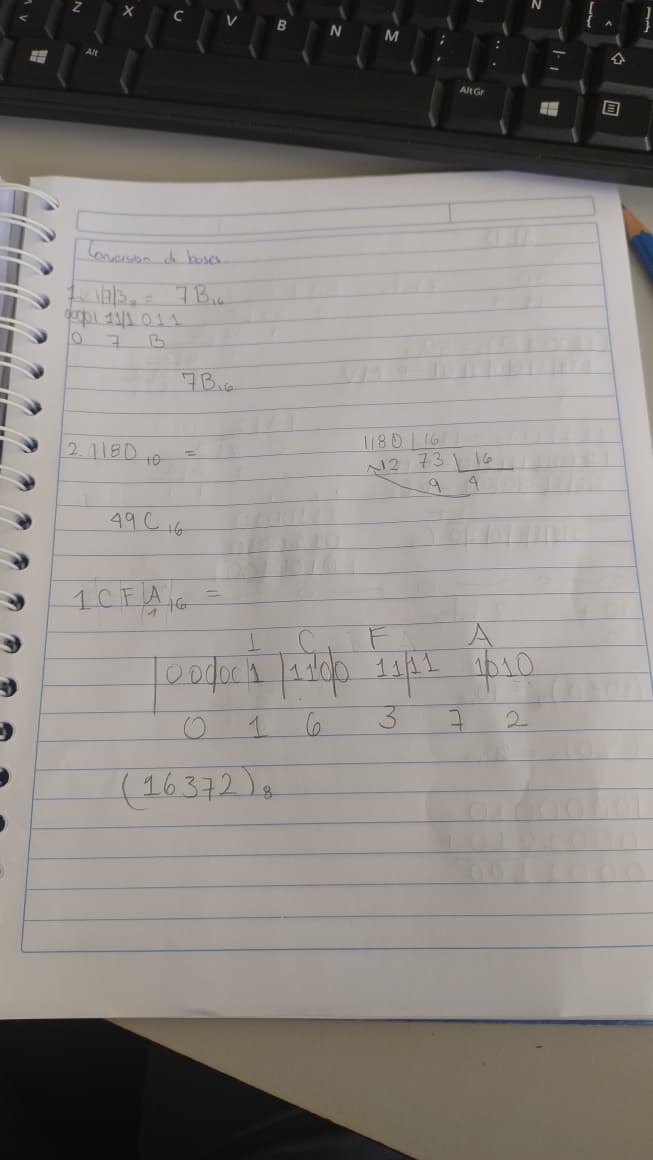 N
Z X C V B N M
Alt
Alt Gr
Conversion de bases
1. 173₈ = 7B₁₆
001 111 011
0 7 B
7B₁₆
2. 1180₁₀ =
1180 16
12 73 16
9 4
49C₁₆
1CFA₁₆ =
1 C F A
00000 1 1100 1111 1010
0 1 6 3 7 2
(16372)₈